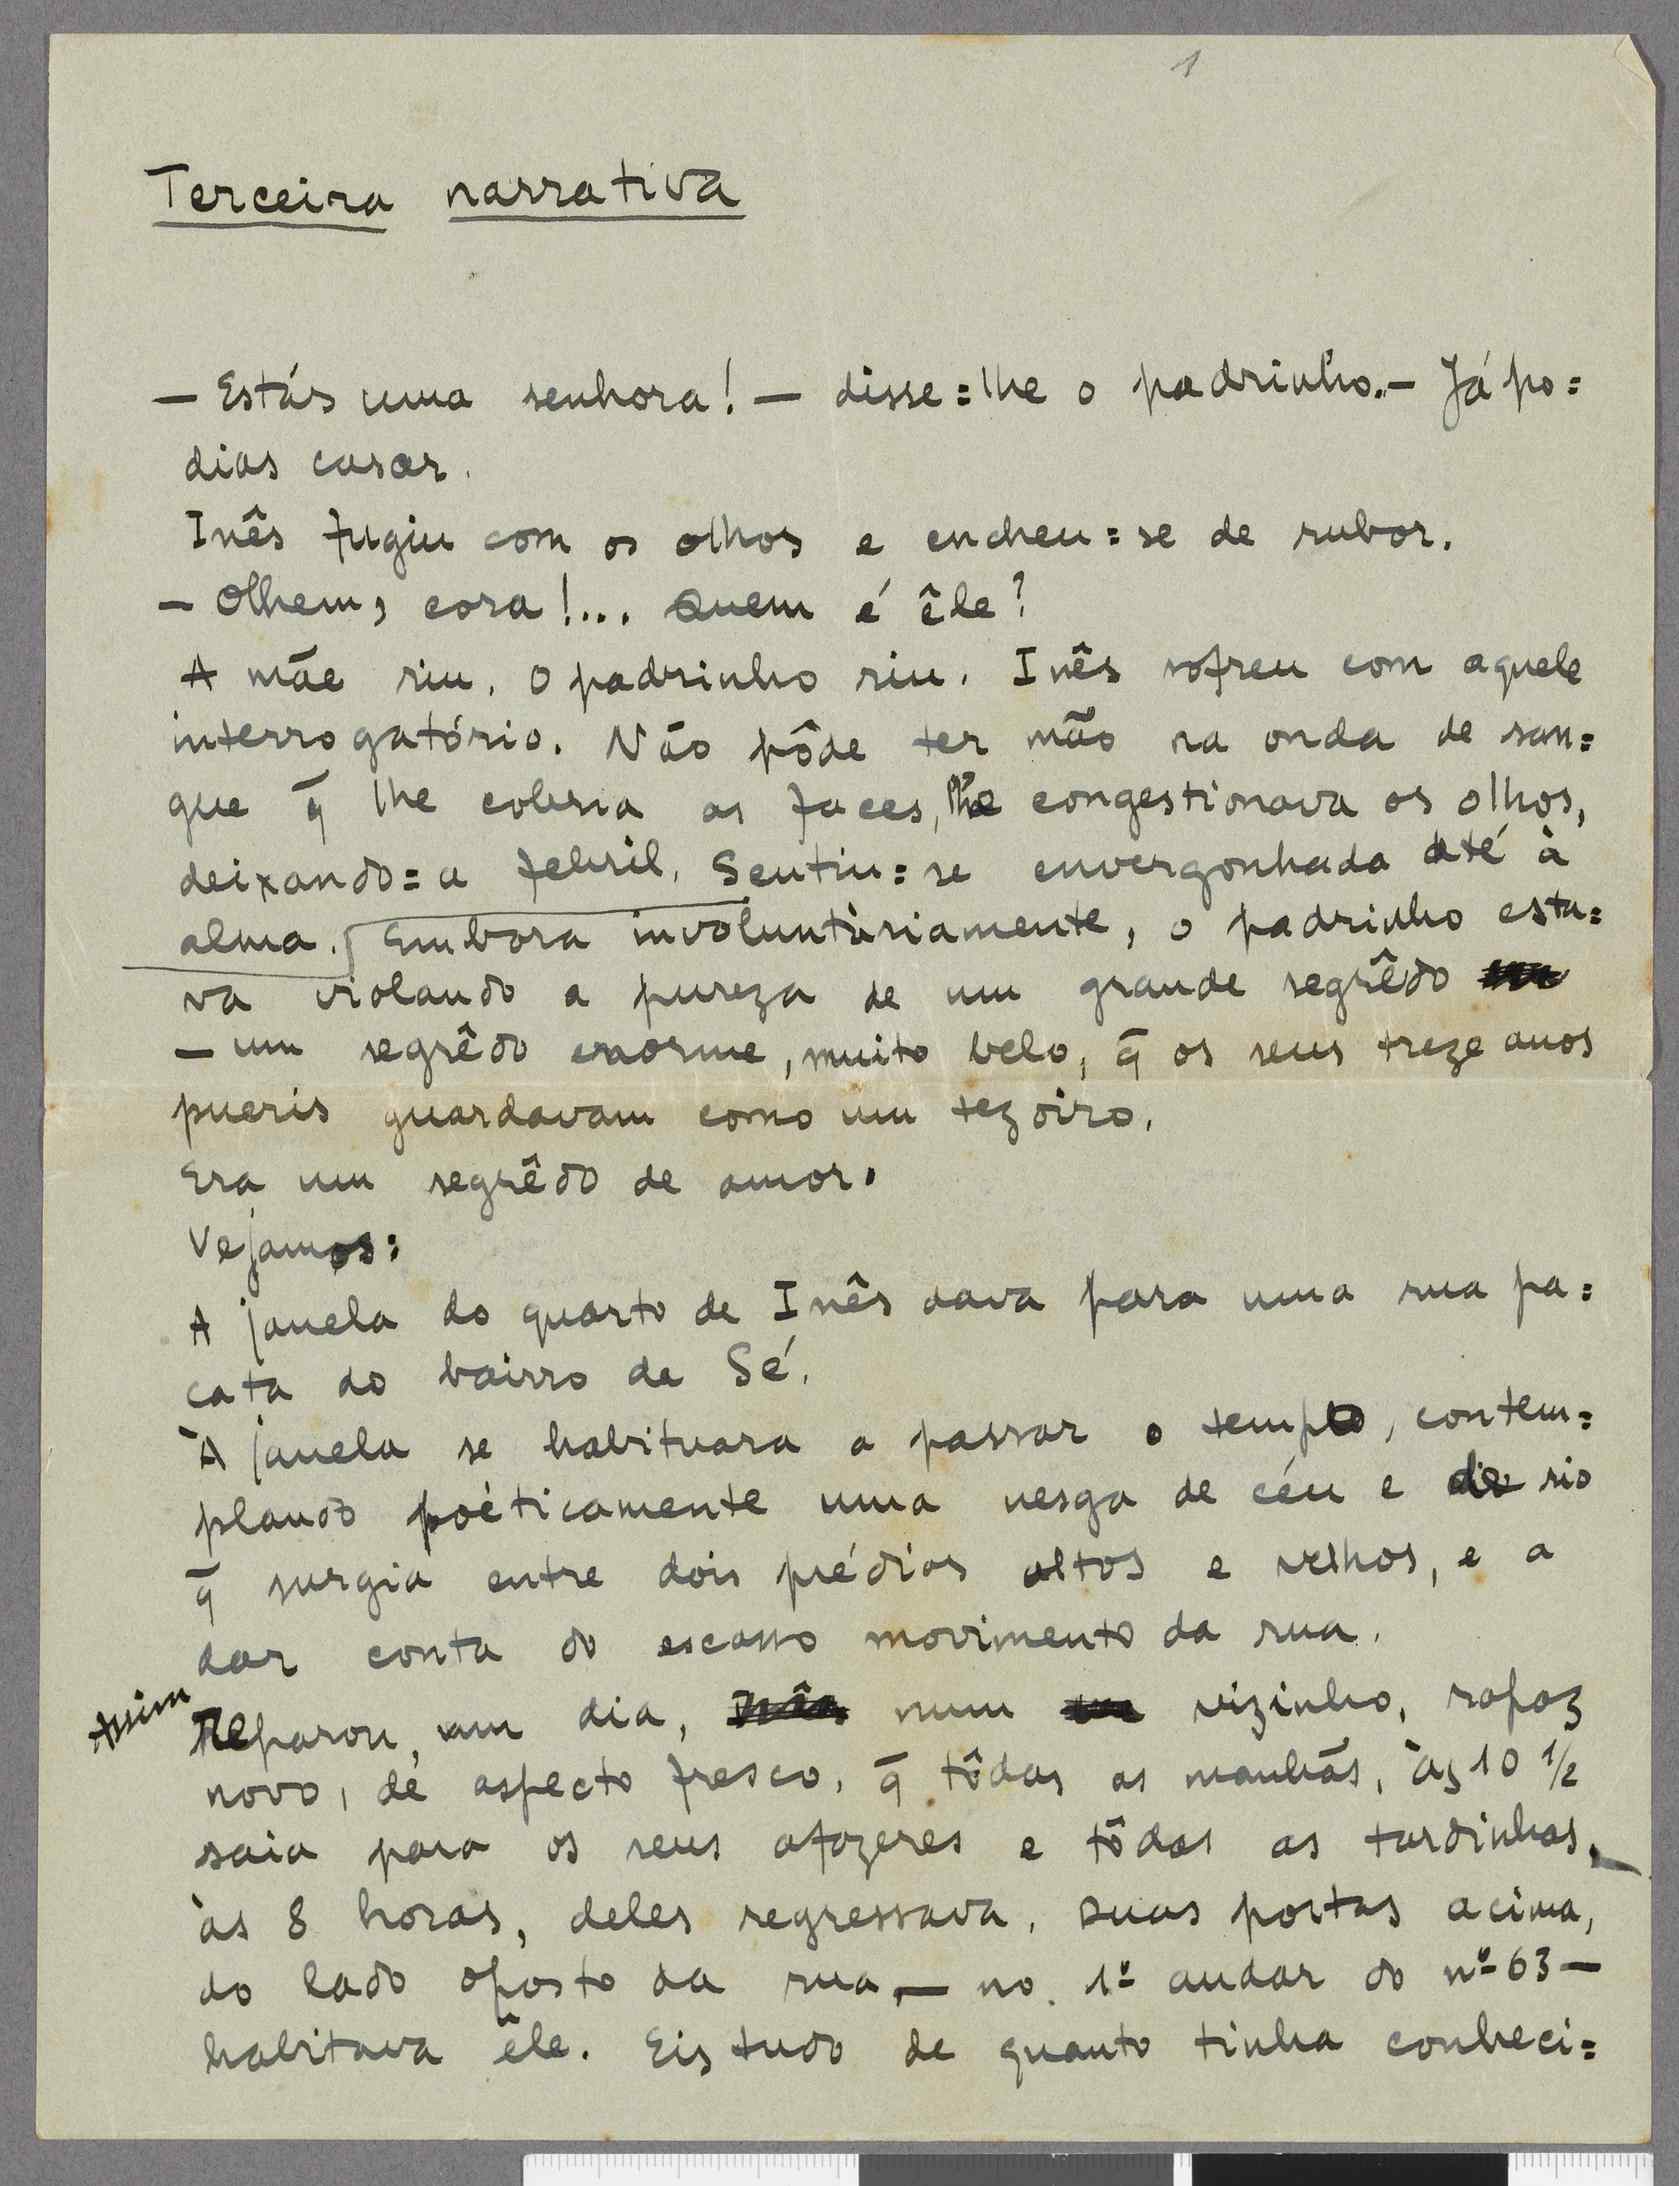 1
Terceira narrativa
— Estás uma senhora! — disse=lhe o padrinho. — Já po=
dias casar.
Inês fugiu com os olhos e encheu=se de rubor.
— Olhem, cora!... Quem é êle?
A mãe riu. O padrinho riu. Inês sofreu com aquele
interrogatório. Não pôde ter mão na onda de san=
gue q̄ lhe cobria as faces, lhe congestionava os olhos,
deixando=a febril. Sentiu=se envergonhada até à
alma. Embora involuntàriamente, o padrinho esta=
va violando a pureza de um grande segrêdo
— um segrêdo enorme, muito belo, q̄ os seus treze anos
pueris guardavam como um tezoiro.
Era um segrêdo de amor.
Vejamos:
A janela do quarto de Inês dava para uma rua pa=
cata do bairro da Sé.
À janela se habituara a passar o tempo, contem=
plando poèticamente uma nesga de céu e de rio
q̄ surgia entre dois prédios altos e velhos, e a
dar conta do escasso movimento da rua.
Assim Reparou, um dia, num vizinho, rapaz
novo, de aspecto fresco, q̄ tôdas as manhãs, às 10 1/2
saia para os seus afazeres e tôdas as tardinhas,
às 8 horas, deles regressava. Duas portas acima,
do lado oposto da rua, — no 1º andar do nº 63 —
habitava êle. Eis tudo de quanto tinha conheci=